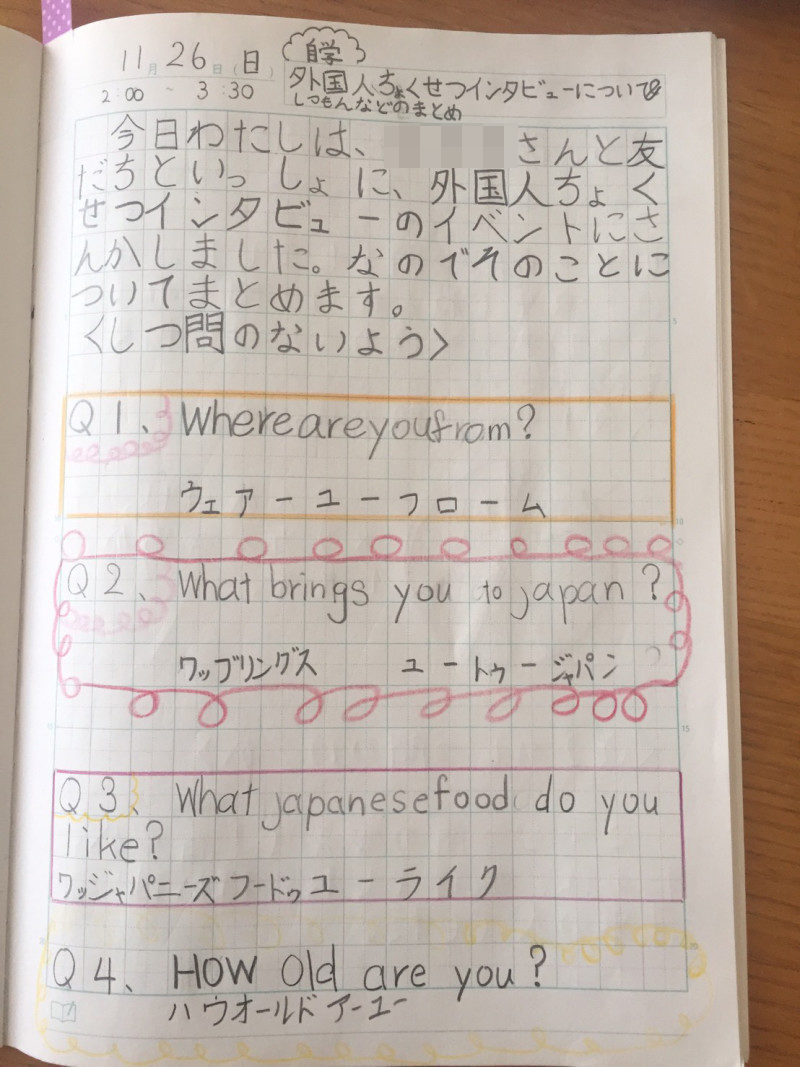 自学
11月26日(日)
外国人ちょくせつインタビューについて
2:00 ~ 3:30
しつもんなどのまとめ
今日わたしは、 さんと友
だちといっしょに、外国人ちょく
せつインタビューのイベントにさ
んかしました。なのでそのことに
ついてまとめます。
くしつ問のないよう>
Q1、Where are you from?
ウェアーユーフローム
Q2、What brings you to japan?
ワップリングス ユートゥージャパン
Q3、What japanese food do you
like?
ワッジャパニーズフードゥユーライク
Q4、HOW old are you?
ハウオールドアーユー